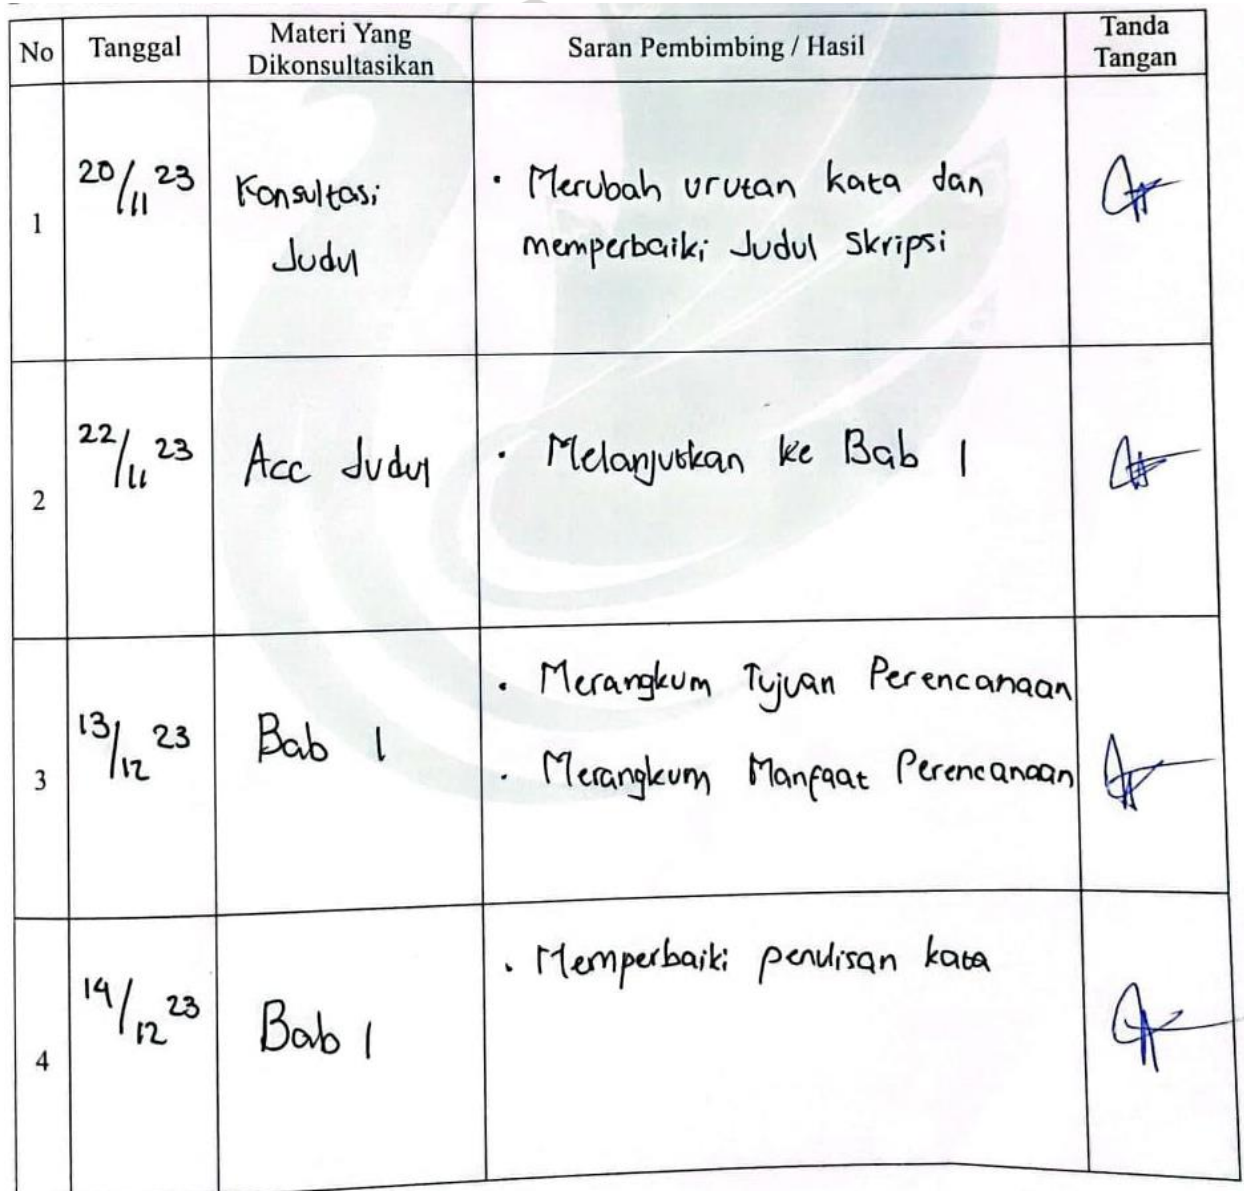 No Tanggal Materi Yang Dikonsultasikan Saran Pembimbing / Hasil Tanda Tangan
1 20/11 23 Konsultasi Judul
• Merubah urutan kata dan
memperbaiki Judul Skripsi
2 22/11 23 Acc Judul • Melanjutkan ke Bab 1
3 13/12 23 Bab 1
• Merangkum Tujuan Perencanaan
• Merangkum Manfaat Perencanaan
4 14/12 23 Bab 1
• Memperbaiki penulisan kata